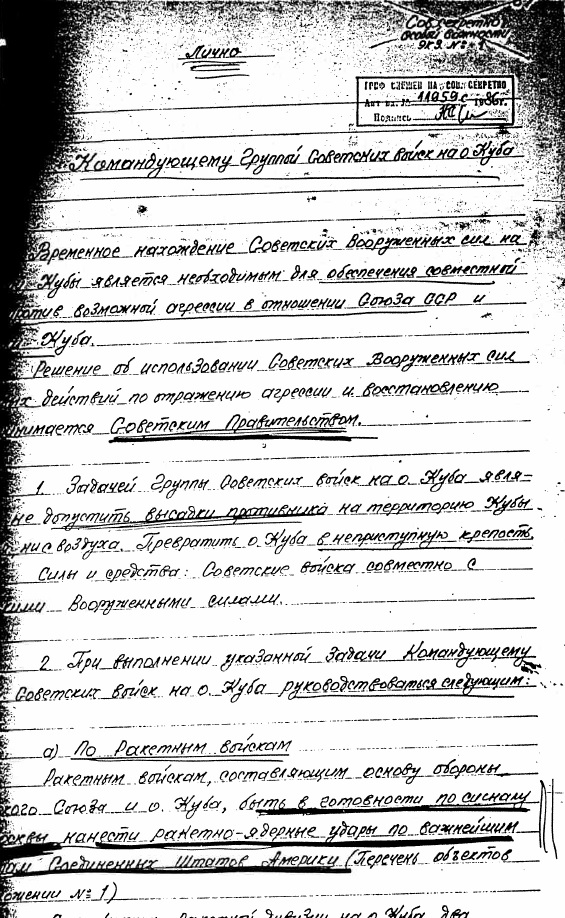 Сов. секретно
Особой важности
Экз. № 1
Лично
ГРИФ СЕКРЕТНО
Акт вх. № 11959с 1986г.
Подпись
Командующему Группой Советских войск на о. Куба
Временное нахождение Советских Вооруженных сил на
Кубы является необходимым для обеспечения совместной
против возможной агрессии в отношении Союза ССР и
Куба.
Решение об использовании Советских Вооруженных сил
действий по отражению агрессии и восстановлению
нимается Советским Правительством.
1. Задачей Группы Советских войск на о. Куба явля-
не допустить высадки противника на территорию Кубы
ни с воздуха. Превратить о. Куба в неприступную крепость.
Силы и средства: Советские войска совместно с
ими Вооруженными силами.
2. При выполнении указанной задачи Командующему
Советских войск на о. Куба руководствоваться следующим:
а) По Ракетным войскам
Ракетным войскам, составляющим основу обороны
кого Союза и о. Куба, быть в готовности по сигналу
осквы нанести ракетно-ядерные удары по важнейшим
там Соединенных Штатов Америки (Перечень объектов
ожении № 1)
дивизии на о. Куба два